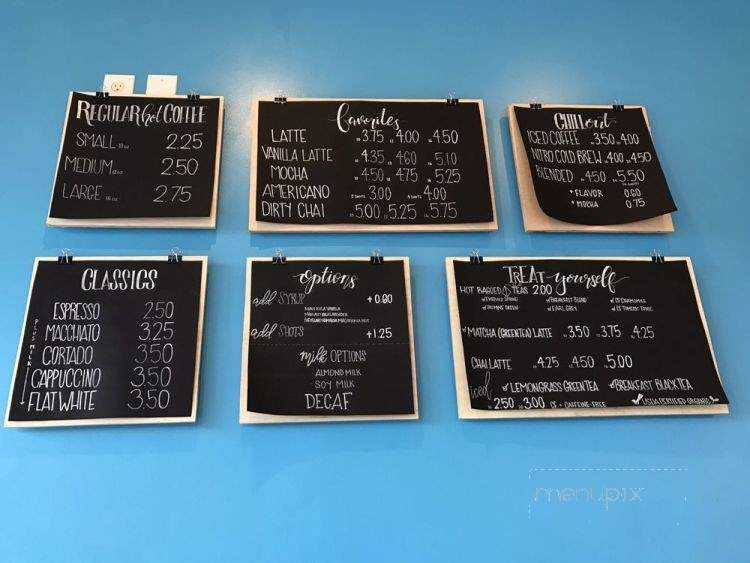 REGULAR hot COFFEE
SMALL 10 oz 2.25
MEDIUM 12 oz 2.50
LARGE 16 oz 2.75
favorites
LATTE 3.75 4.00 4.50
VANILLA LATTE 4.35 4.60 5.10
MOCHA 4.50 4.75 5.25
AMERICANO 3.00 4.00
DIRTY CHAI 5.00 5.25 5.75
CHILLout
ICED COFFEE 3.50 4.00
NITRO COLD BREW 4.00 4.50
BLENDED 4.50 5.50
+ FLAVOR 0.60
+ MOCHA 0.75
CLASSICS
ESPRESSO 2.50
MACCHIATO 3.25
CORTADO 3.50
CAPPUCCINO 3.50
FLAT WHITE 3.50
PLUS MILK
options
add SYRUP +0.60
add SHOTS +1.25
milk OPTIONS
- ALMOND MILK -
- SOY MILK -
DECAF
TREAT yourself
HOT BAGGED TEAS 2.00
EMERALD SPRING BREAKFAST BLEND CF CHAMOMILE
JASMINE GREEN EARL GREY CF TUMERIC TONIC
MATCHA (GREEN TEA) LATTE 3.50 3.75 4.25
CHAI LATTE 4.25 4.50 5.00
iced LEMONGRASS GREEN TEA BREAKFAST BLACK TEA
2.50 3.00 CF - CAFFEINE-FREE USDA CERTIFIED ORGANIC
menupix